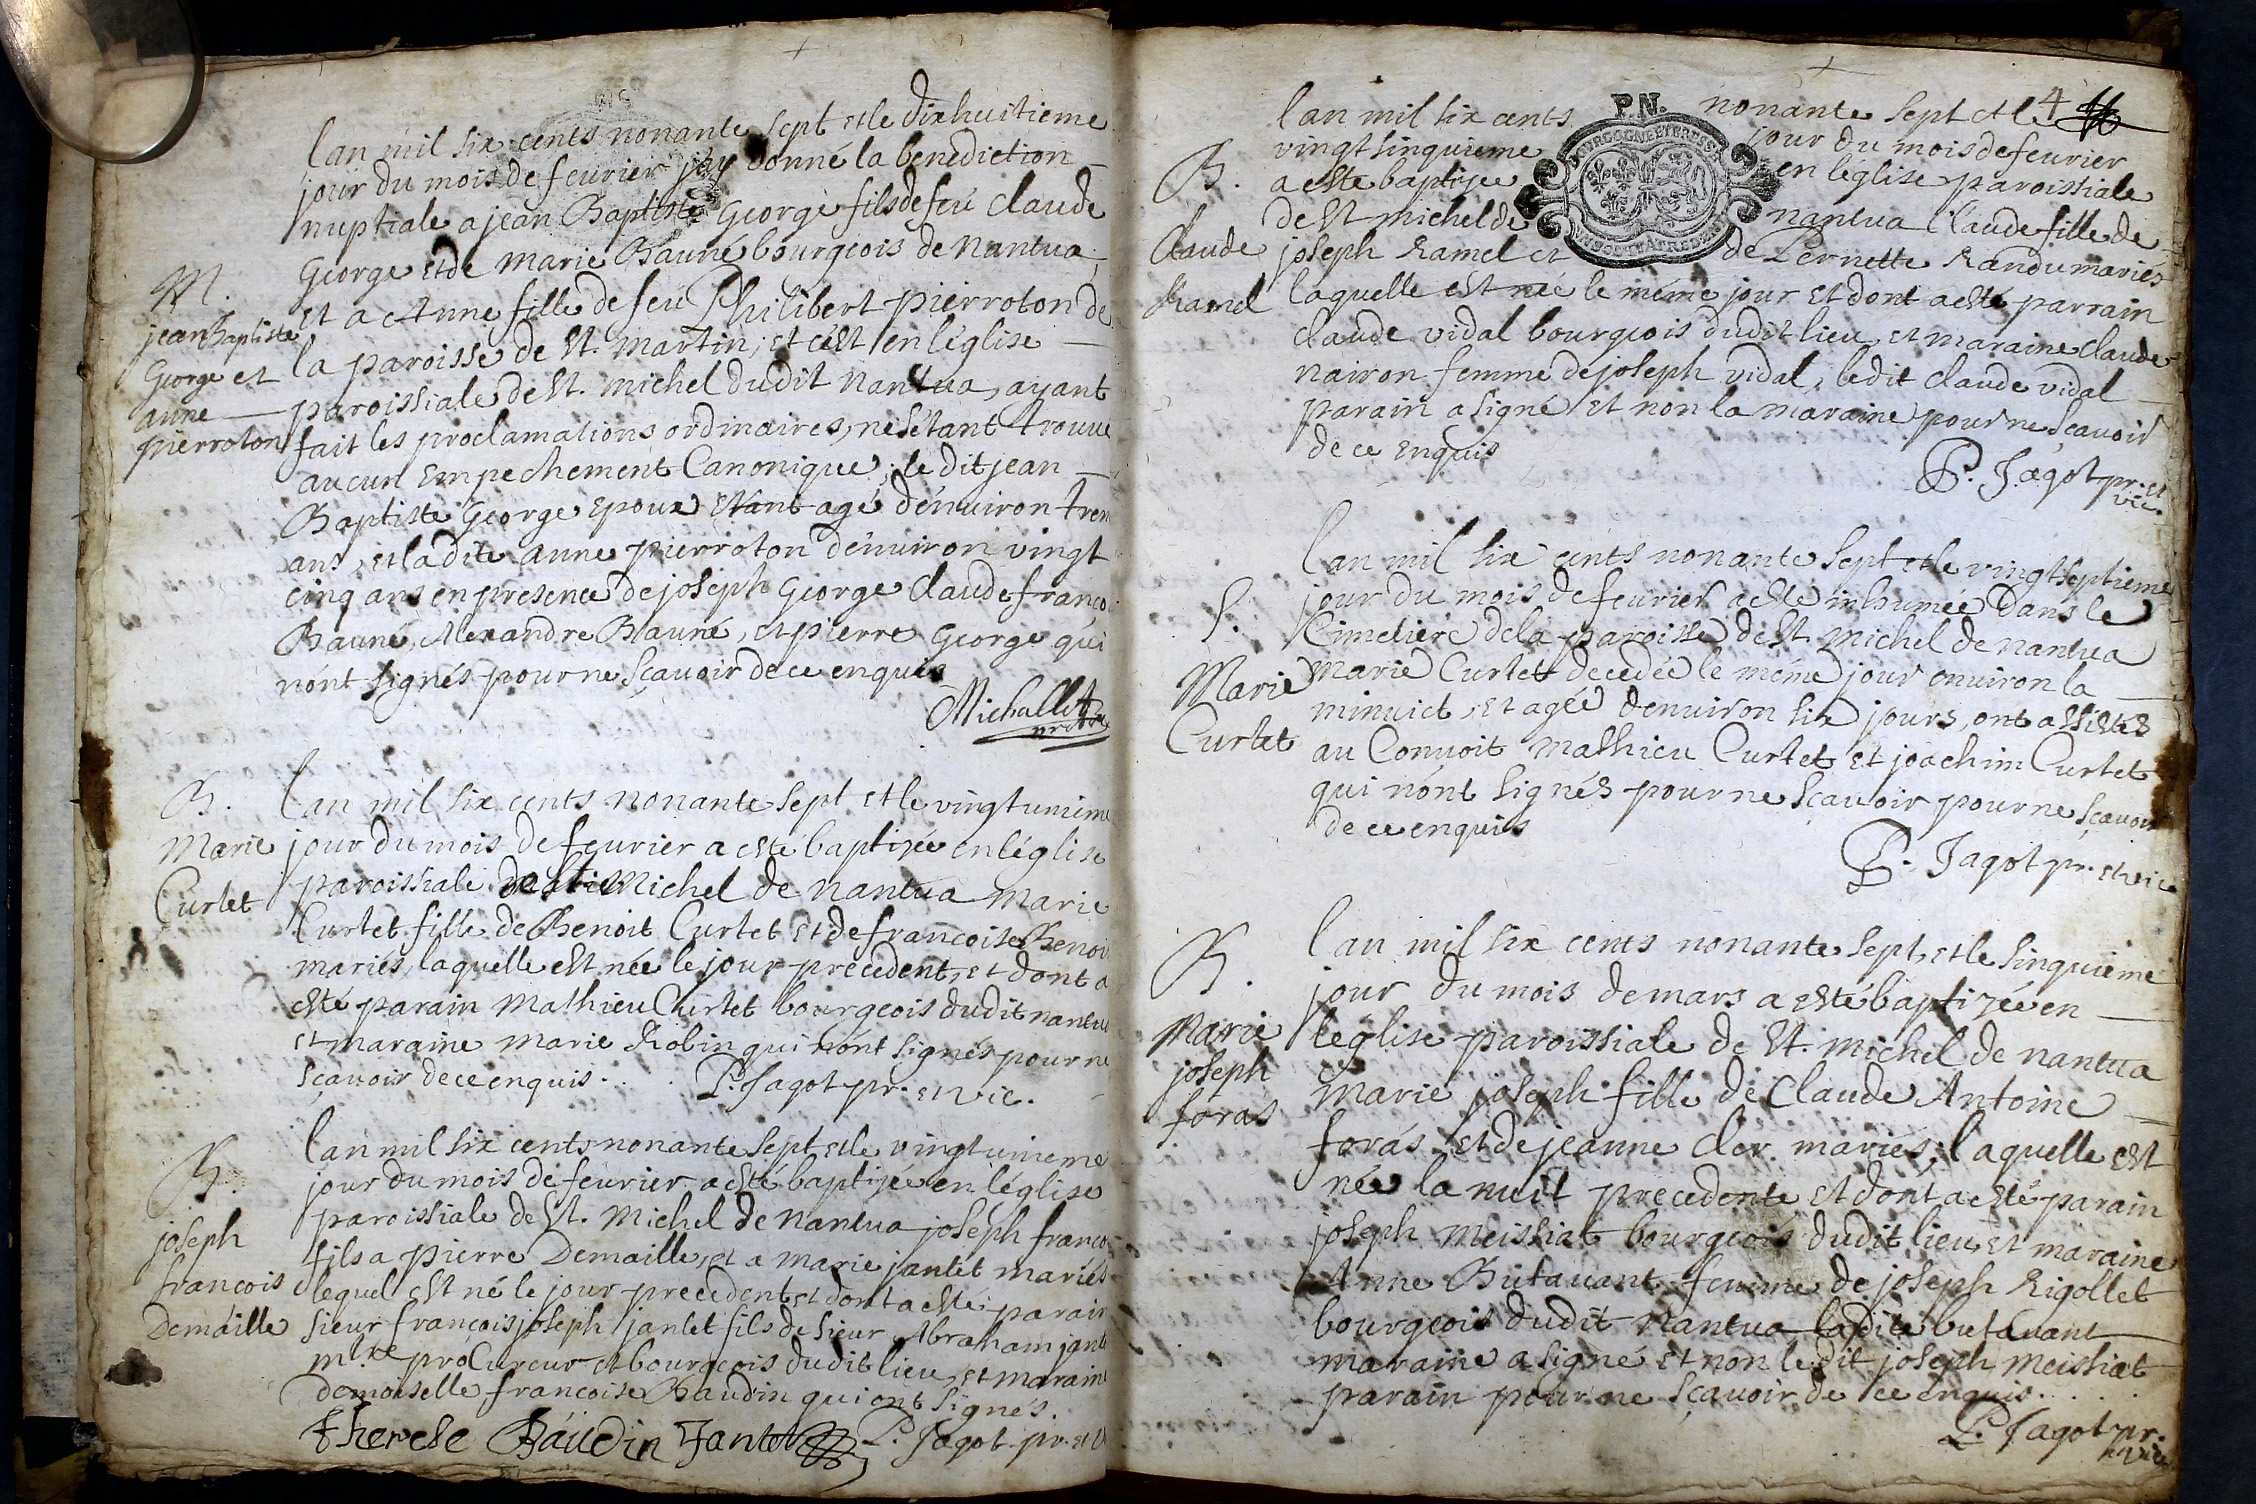 lan mil six cents nonante sept et le dixhuitieme
jour du mois de feurier jay donné la benediction
nuptiale a jean Baptiste George fils de feu Claude
George et de marie Bauné bourgeois de Nantua,
et a Anne fille de feu Philibert pierroton de
la paroisse de St. martin, et c'est en l'église
paroissiale de St. michel dudit Nantua, ayant
fait les proclamations ordinaires, ne s'étant trouué
aucun empechement Canonique, le dit jean
Baptiste George epoux étant agé d'enuiron tren
ans, et la dite anne pierroton d'enuiron vingt
cinq ans en presence de joseph George Claude franço
Bauné, Alexandre Bauné, et pierre George qui
n'ont signés pour ne sçauoir de ce enquis
Michallet
M.
jean Baptiste
George et
anne
pierroton
B.
Marie
Curlet
lan mil six cents nonante sept et le vingtunieme
jour du mois de feurier a esté baptizée en l'église
paroissiale Michel de nantua Marie
Curlet fille de Benoit Curlet et de francoise Benoi
mariés, laquelle est née le jour precedent, et dont a
esté parain Mathieu Curlet bourgeois dudit nantua
et maraine marie Robin qui n'ont signés pour ne
sçauoir de ce enquis. P. Jagot pr. et vic.
B.
joseph
françois
Demaille
lan mil six cents nonante sept et le vingtunieme
jour du mois de feurier a esté baptizée en l'église
paroissiale de St. Michel de nantua joseph franco
fils a pierre Demaille, et a marie jantet mariés
lequel est né le jour precedent et dont a esté parain
sieur françois joseph jantet fils de sieur Abraham jante
mtre procureur et bourgeois dudit lieu, et maraine
demoiselle francoise Baudin qui ont signés.
therese Baudin Jantet P. Jagot pr. et v
4
P.N.
B.
Claude
Ramel
lan mil six cents nonante sept et le
vingtsinquieme jour du mois de feurier
a esté baptizée en l'église paroissiale
de St michel de nantua Claude fille de
joseph Ramel et de Pernette Randu mariés
laquelle est née le même jour et dont a esté parrain
claude vidal bourgeois dudit lieu, et maraine claude
nairon femme de joseph vidal, ledit claude vidal
parain a signé et non la maraine pour ne sçauoir
de ce enquis
P. Jagot pr. et
vic.
S.
Marie
Curlet
lan mil six cents nonante sept et le vingtseptieme
jour du mois de feurier a esté inhumée dans le
Cimetiere de la paroisse de St. michel de nantua
marie Curlet decedée le même jour enuiron la
minuict, et agée d'enuiron six jours, ont assistés
au Conuoit Mathieu Curlet et joachim Curlet
qui n'ont signés pour ne sçauoir pour ne sçauoir
de ce enquis
P. Jagot pr. et vic
B.
Marie
joseph
foras
lan mil six cents nonante sept, et le sinquieme
jour du mois de mars a esté baptizée en
l'église paroissiale de St. michel de nantua
Marie joseph fille de Claude Antoine
forás et de jeanne cler mariés, laquelle est
née la nuit precedente et dont a esté parain
joseph Meissiat bourgeois dudit lieu, et maraine
Anne Butauant femme de joseph Rigollet
bourgeois dudit Nantua ladite butauant
maraine a signé et non le dit joseph meissiat
parain pour ne sçauoir de ce enquis.
P. Jagot pr.